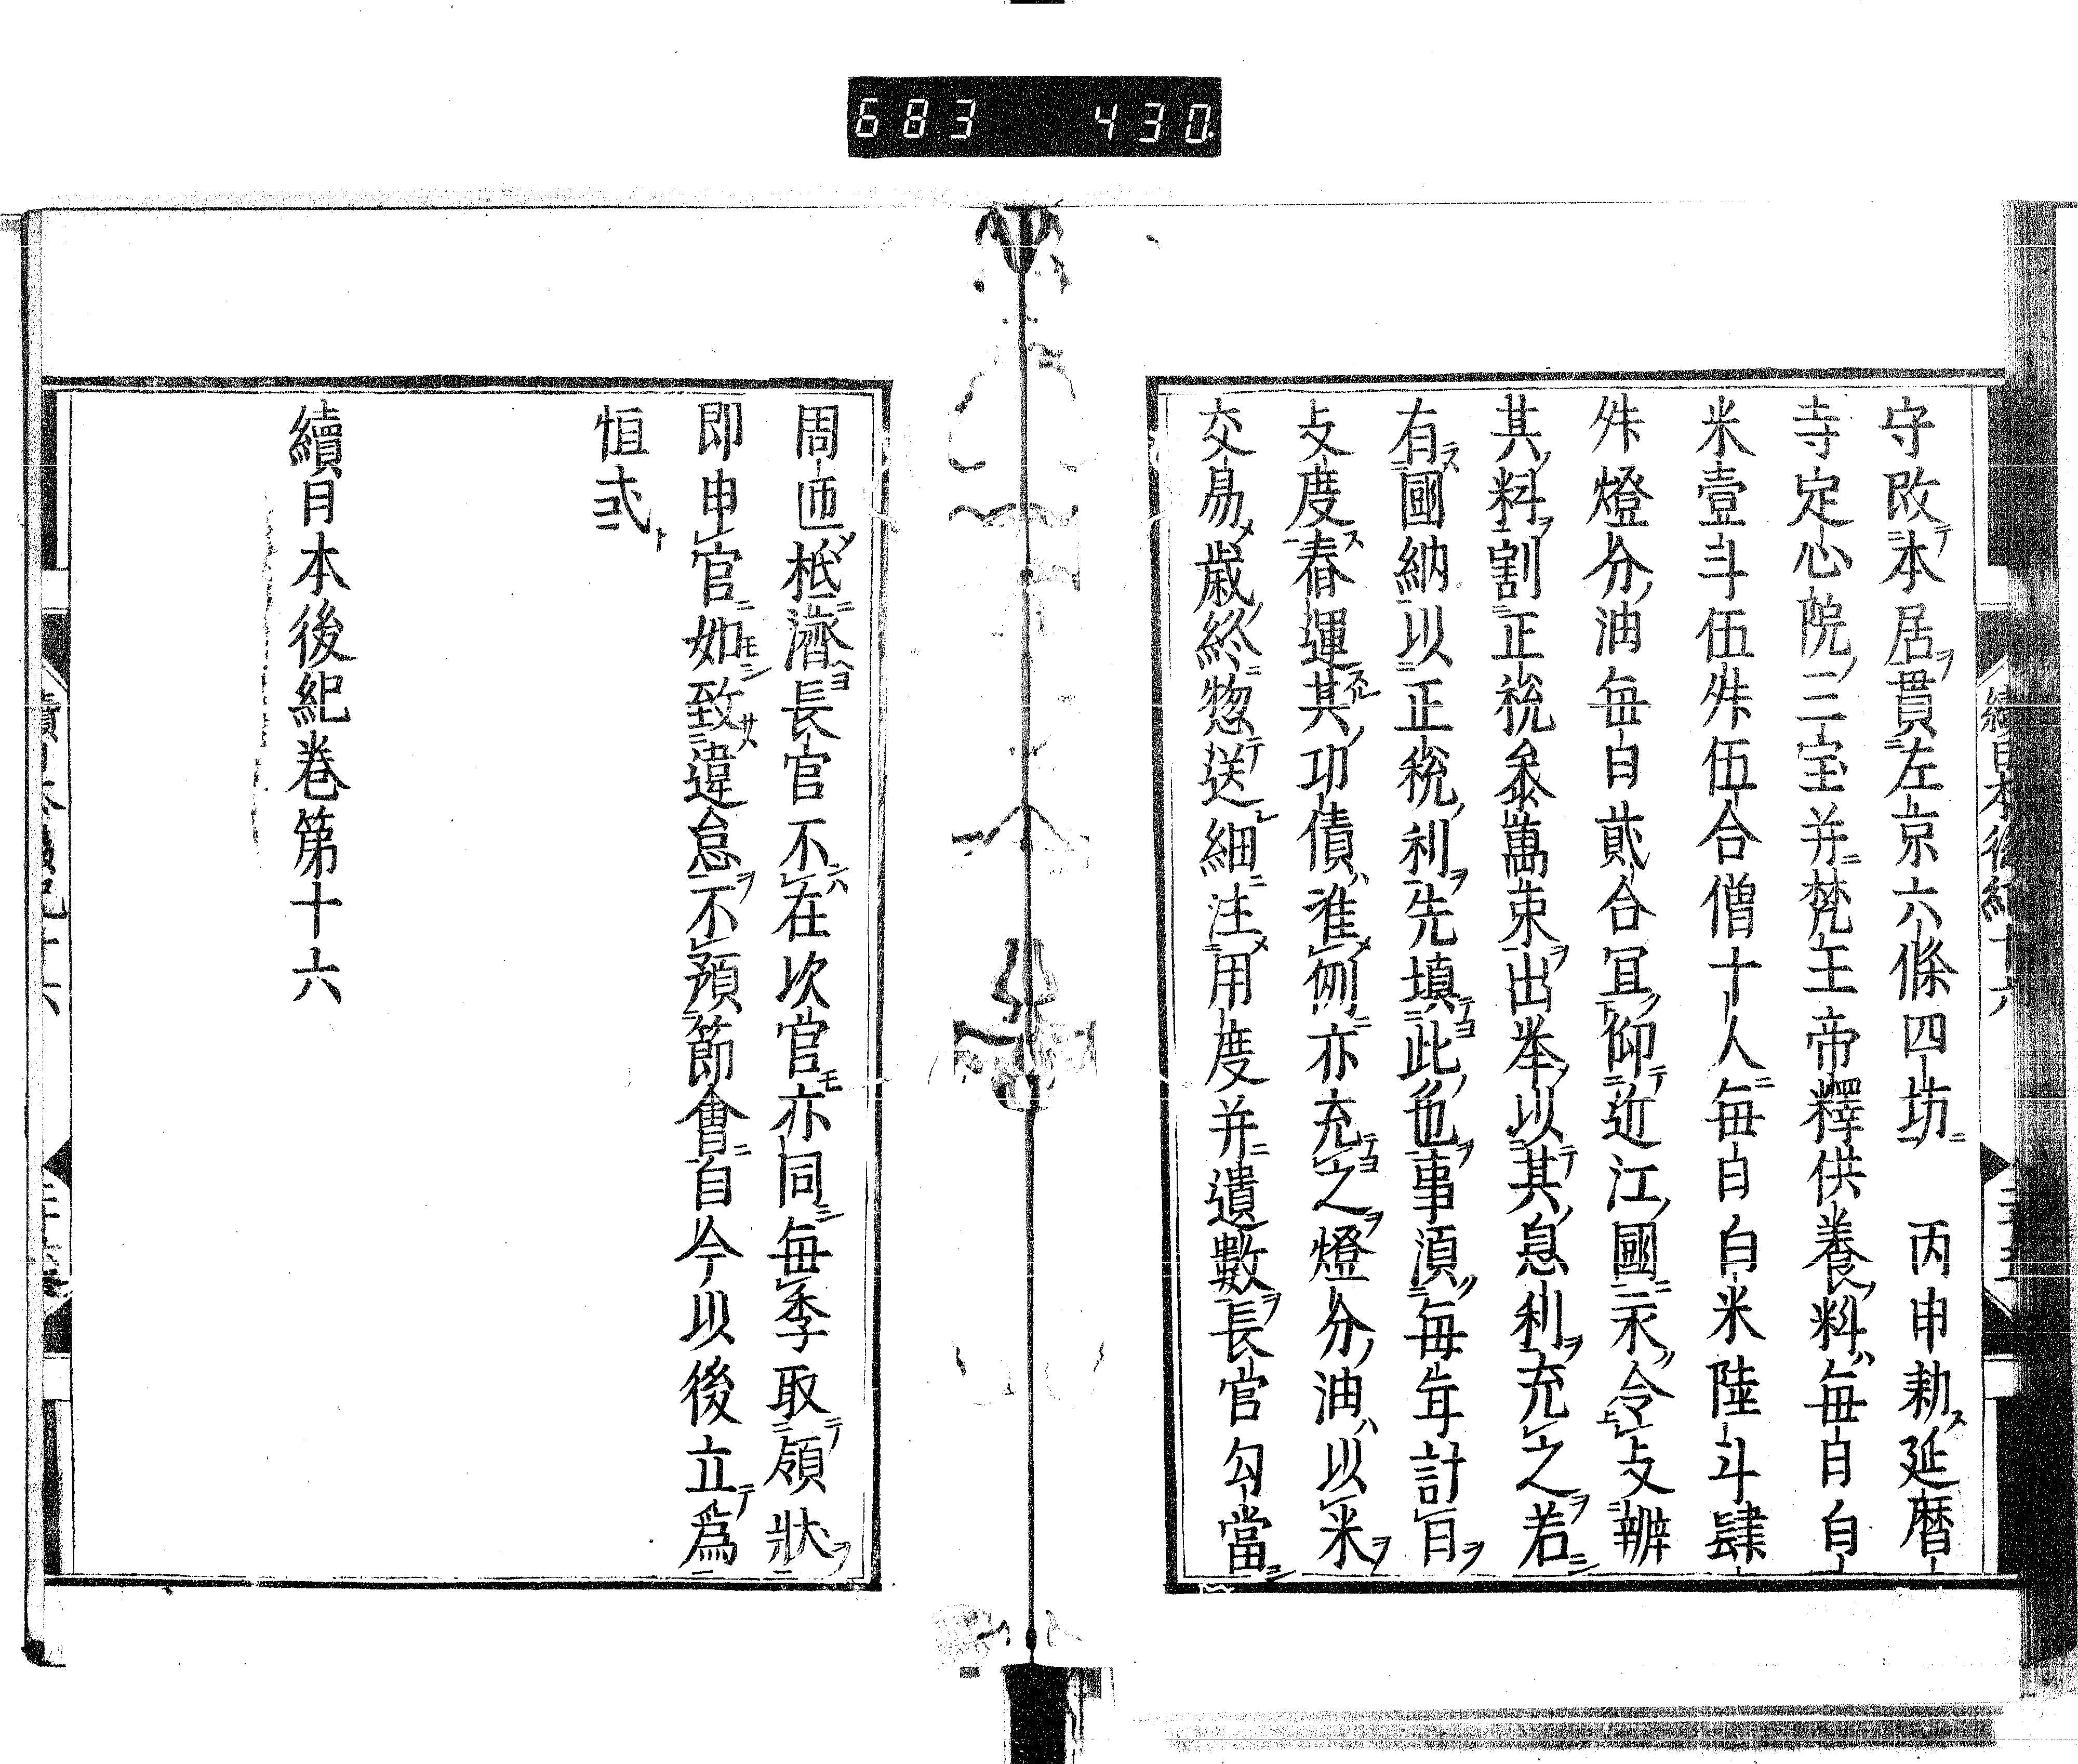 683 430
守改本居貫左京六條四坊 丙申勑延暦
寺定心院三宝并梵王帝釋供養料毎日白
米壹斗伍升伍合僧十人毎日白米陸斗肆
升燈分油毎日貮合冝仰近江國永令支辨
其料割正税叄萬束出挙以其息利充之若
有國納以正税利先填此色事須毎年計日
支度舂運其功債准例亦充之燈分油以米
交易歳終惣送細注用度并遺數長官勾當
周迊柢濟長官不在次官亦同毎季取領狀
即申官如致違怠不預節會自今以後立爲
恒式
續日本後紀巻第十六